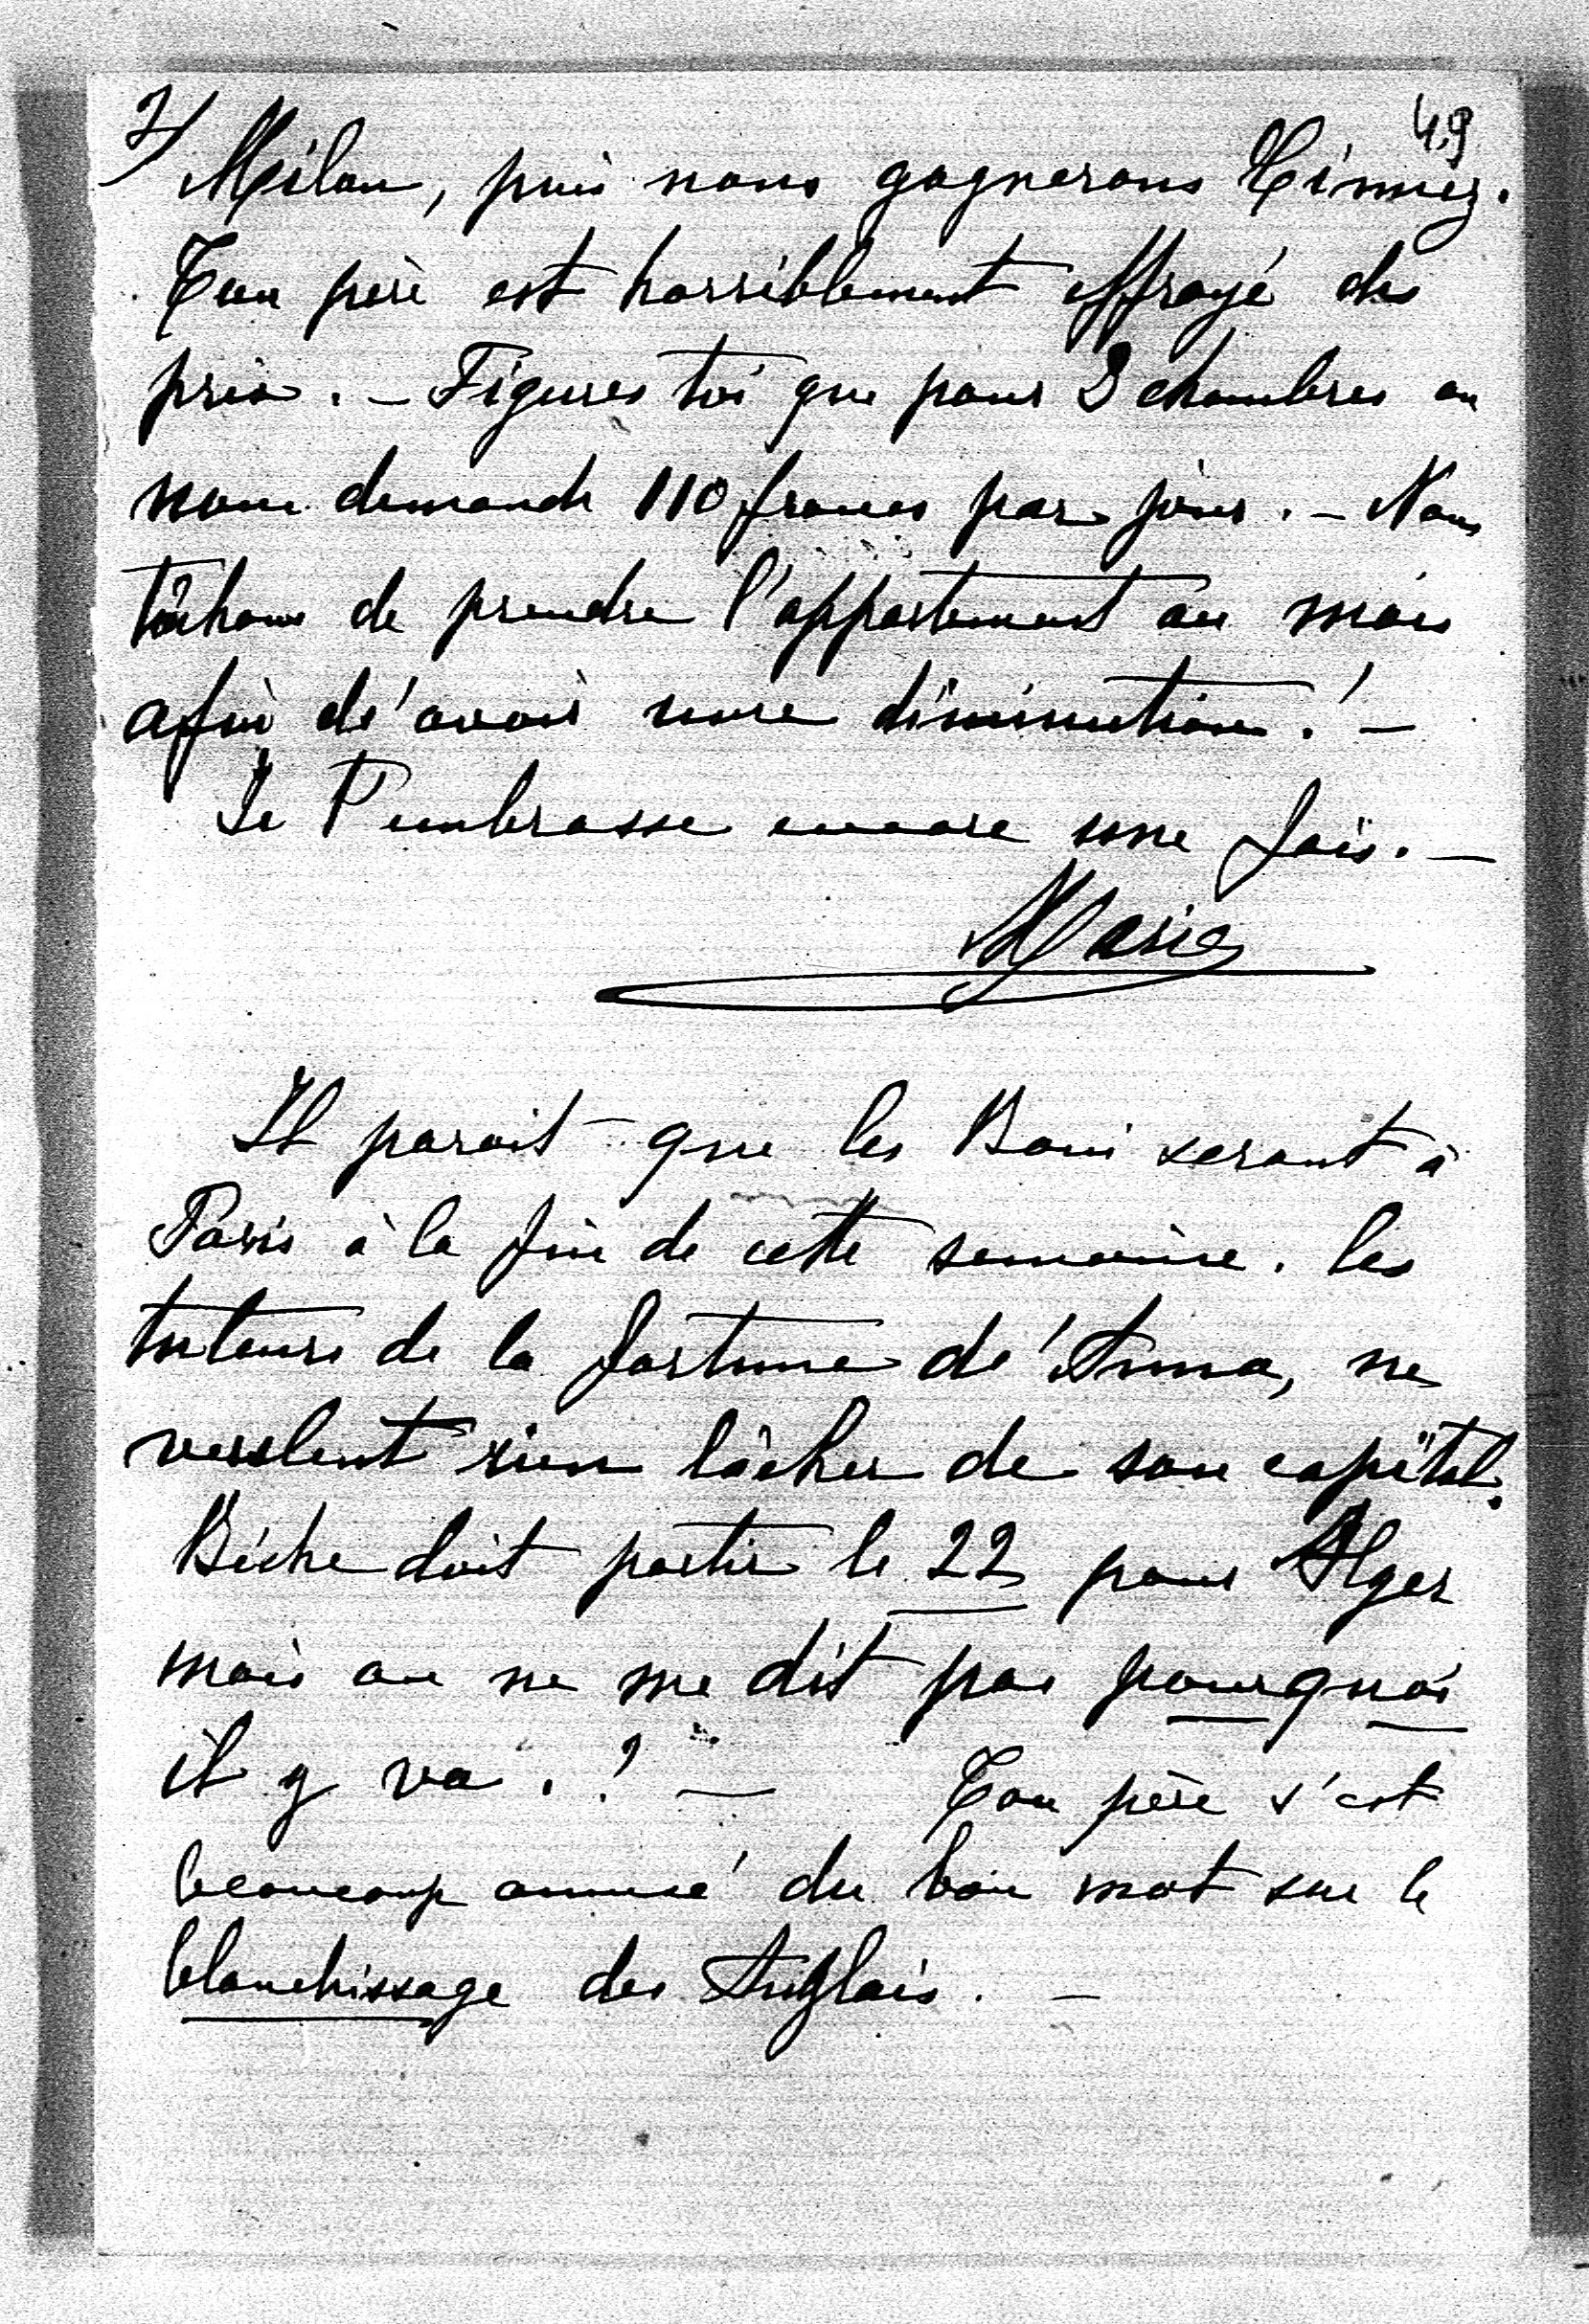 7/ 49
Milan, puis nous gagnerons Nimiez.
Ton père est horriblement effrayé des
prix. – Figures toi que pour 3 chambres on
nous demande 110 francs par jour. – Nous
tâchons de prendre l'appartement au mois
afin d'avoir une diminution! –
Je T'embrasse encore une fois. –
Marie
Il parait que les Boni seront à
Paris à la fin de cette semaine. les
tuteurs de la fortune d'Anna, ne
veulent rien lâcher de son capital.
Bèche doit partir le 22 pour Alger
mais on ne me dit pas pourquoi
il y va.? – Ton père s'est
beaucoup amusé du bon mot sur le
blanchissage des Anglais. –